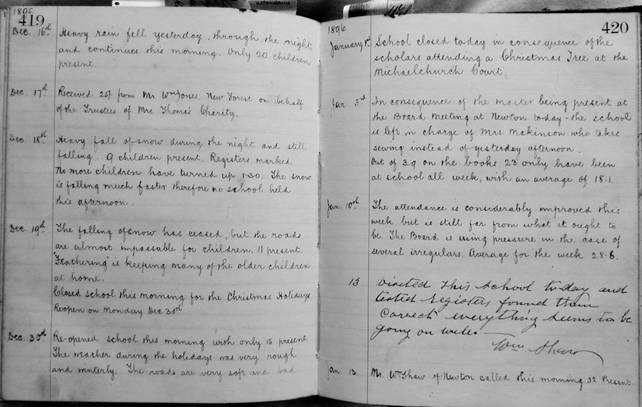 1895
419
Dec. 16th Heavy rain fell yesterday, through the night
and continues this morning. Only 20 children
present.
Dec 17th Received 25/- from Mr Wm Jones, New Forest on behalf
of the Trustees of Mrs Thomas' Charity.
Dec 18th Heavy fall of snow during the night and still
falling. 9 children present. Registers marked
No more children have turned up 1.30. The snow
is falling much faster therefore no school held
this afternoon.
Dec. 19th The falling of snow has ceased, but the roads
are almost impassable for children. 11 present.
"Feathering" is keeping many of the older children
at home.
Closed school this morning for the Christmas Holidays
Reopen on Monday Dec 30th
Dec. 30th Re-opened school this morning with only 15 present
The weather during the holidays was very rough
and winterly. The roads are very soft and bad
1896
420
January 1st School closed today in consequence of the
scholars attending a Christmas Tree at the
Michaelchurch Court.
Jan. 3rd In consequence of the master being present at
the Board Meeting at Newton today - the school
is left in charge of Mrs. Makinson who takes
sewing instead of yesterday afternoon.
Out of 39 on the books 23 only have been
at school all week, with an average of 18.1.
Jan. 10th The attendance is considerably improved this
week but is still far from what it ought to
be. The Board is using pressure in the case of
several irregulars. Average for the week 28.6.
13 Visited this School today and
tested registers found them
Correct everything seems to be
going on well.
Wm Shaw
Jan 13. Mr. Wm Shaw of Newton called this morning 32 Present